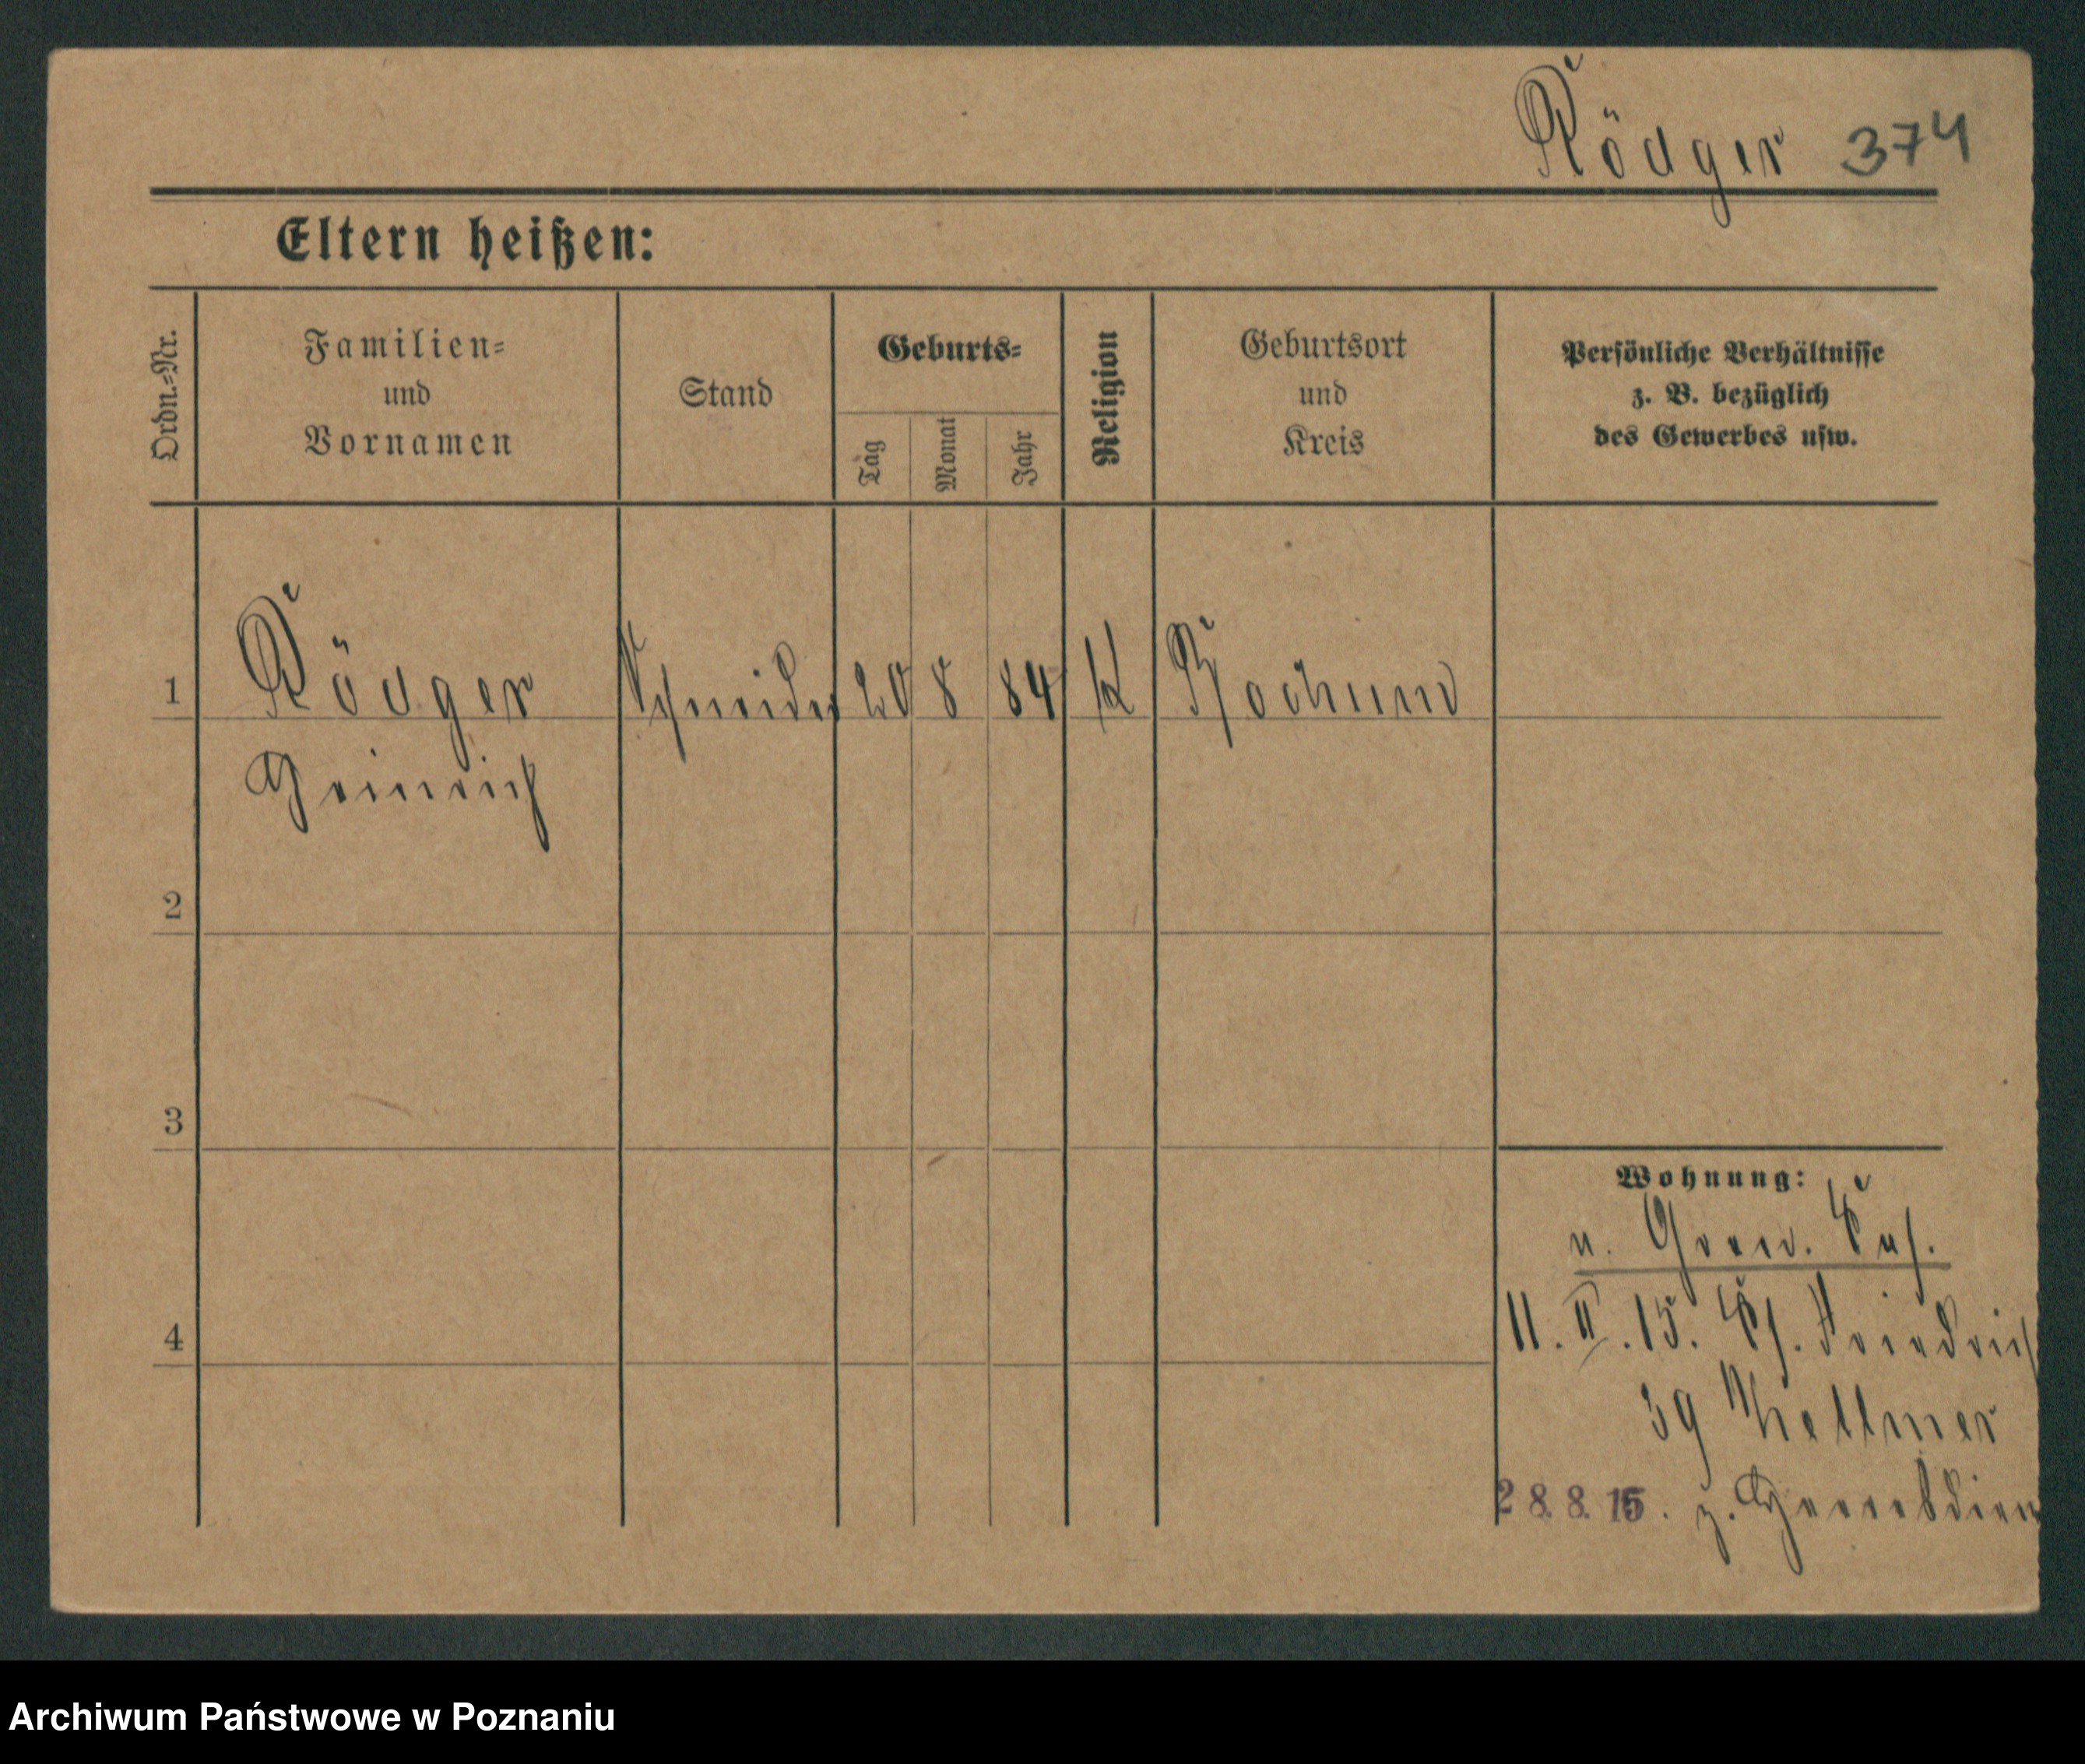 Rödger 374
Eltern heißen:
Ordn.=Nr.
Familien=
und
Vornamen
Stand
Geburts=
Tag
Monat
Jahr
Religion
Geburtsort
und
Kreis
Persönliche Verhältnisse
z. B. bezüglich
des Gewerbes usw.
1 Rödger Schneider 20 8 84 K Bochum
Heinrich
2
3
4
Wohnung:
11. II. 15. Friedrich
39
28. 8. 15. z. Heeresdien
Archiwum Państwowe w Poznaniu